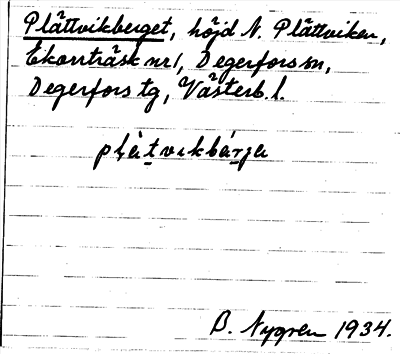 Plättvikberget, höjd N. Plättviken,
Ekorrträsk nr 1, Degerfors sn,
Degerfors tg, Västerb. l.
plätvikbärja
B. Nygren 1934.